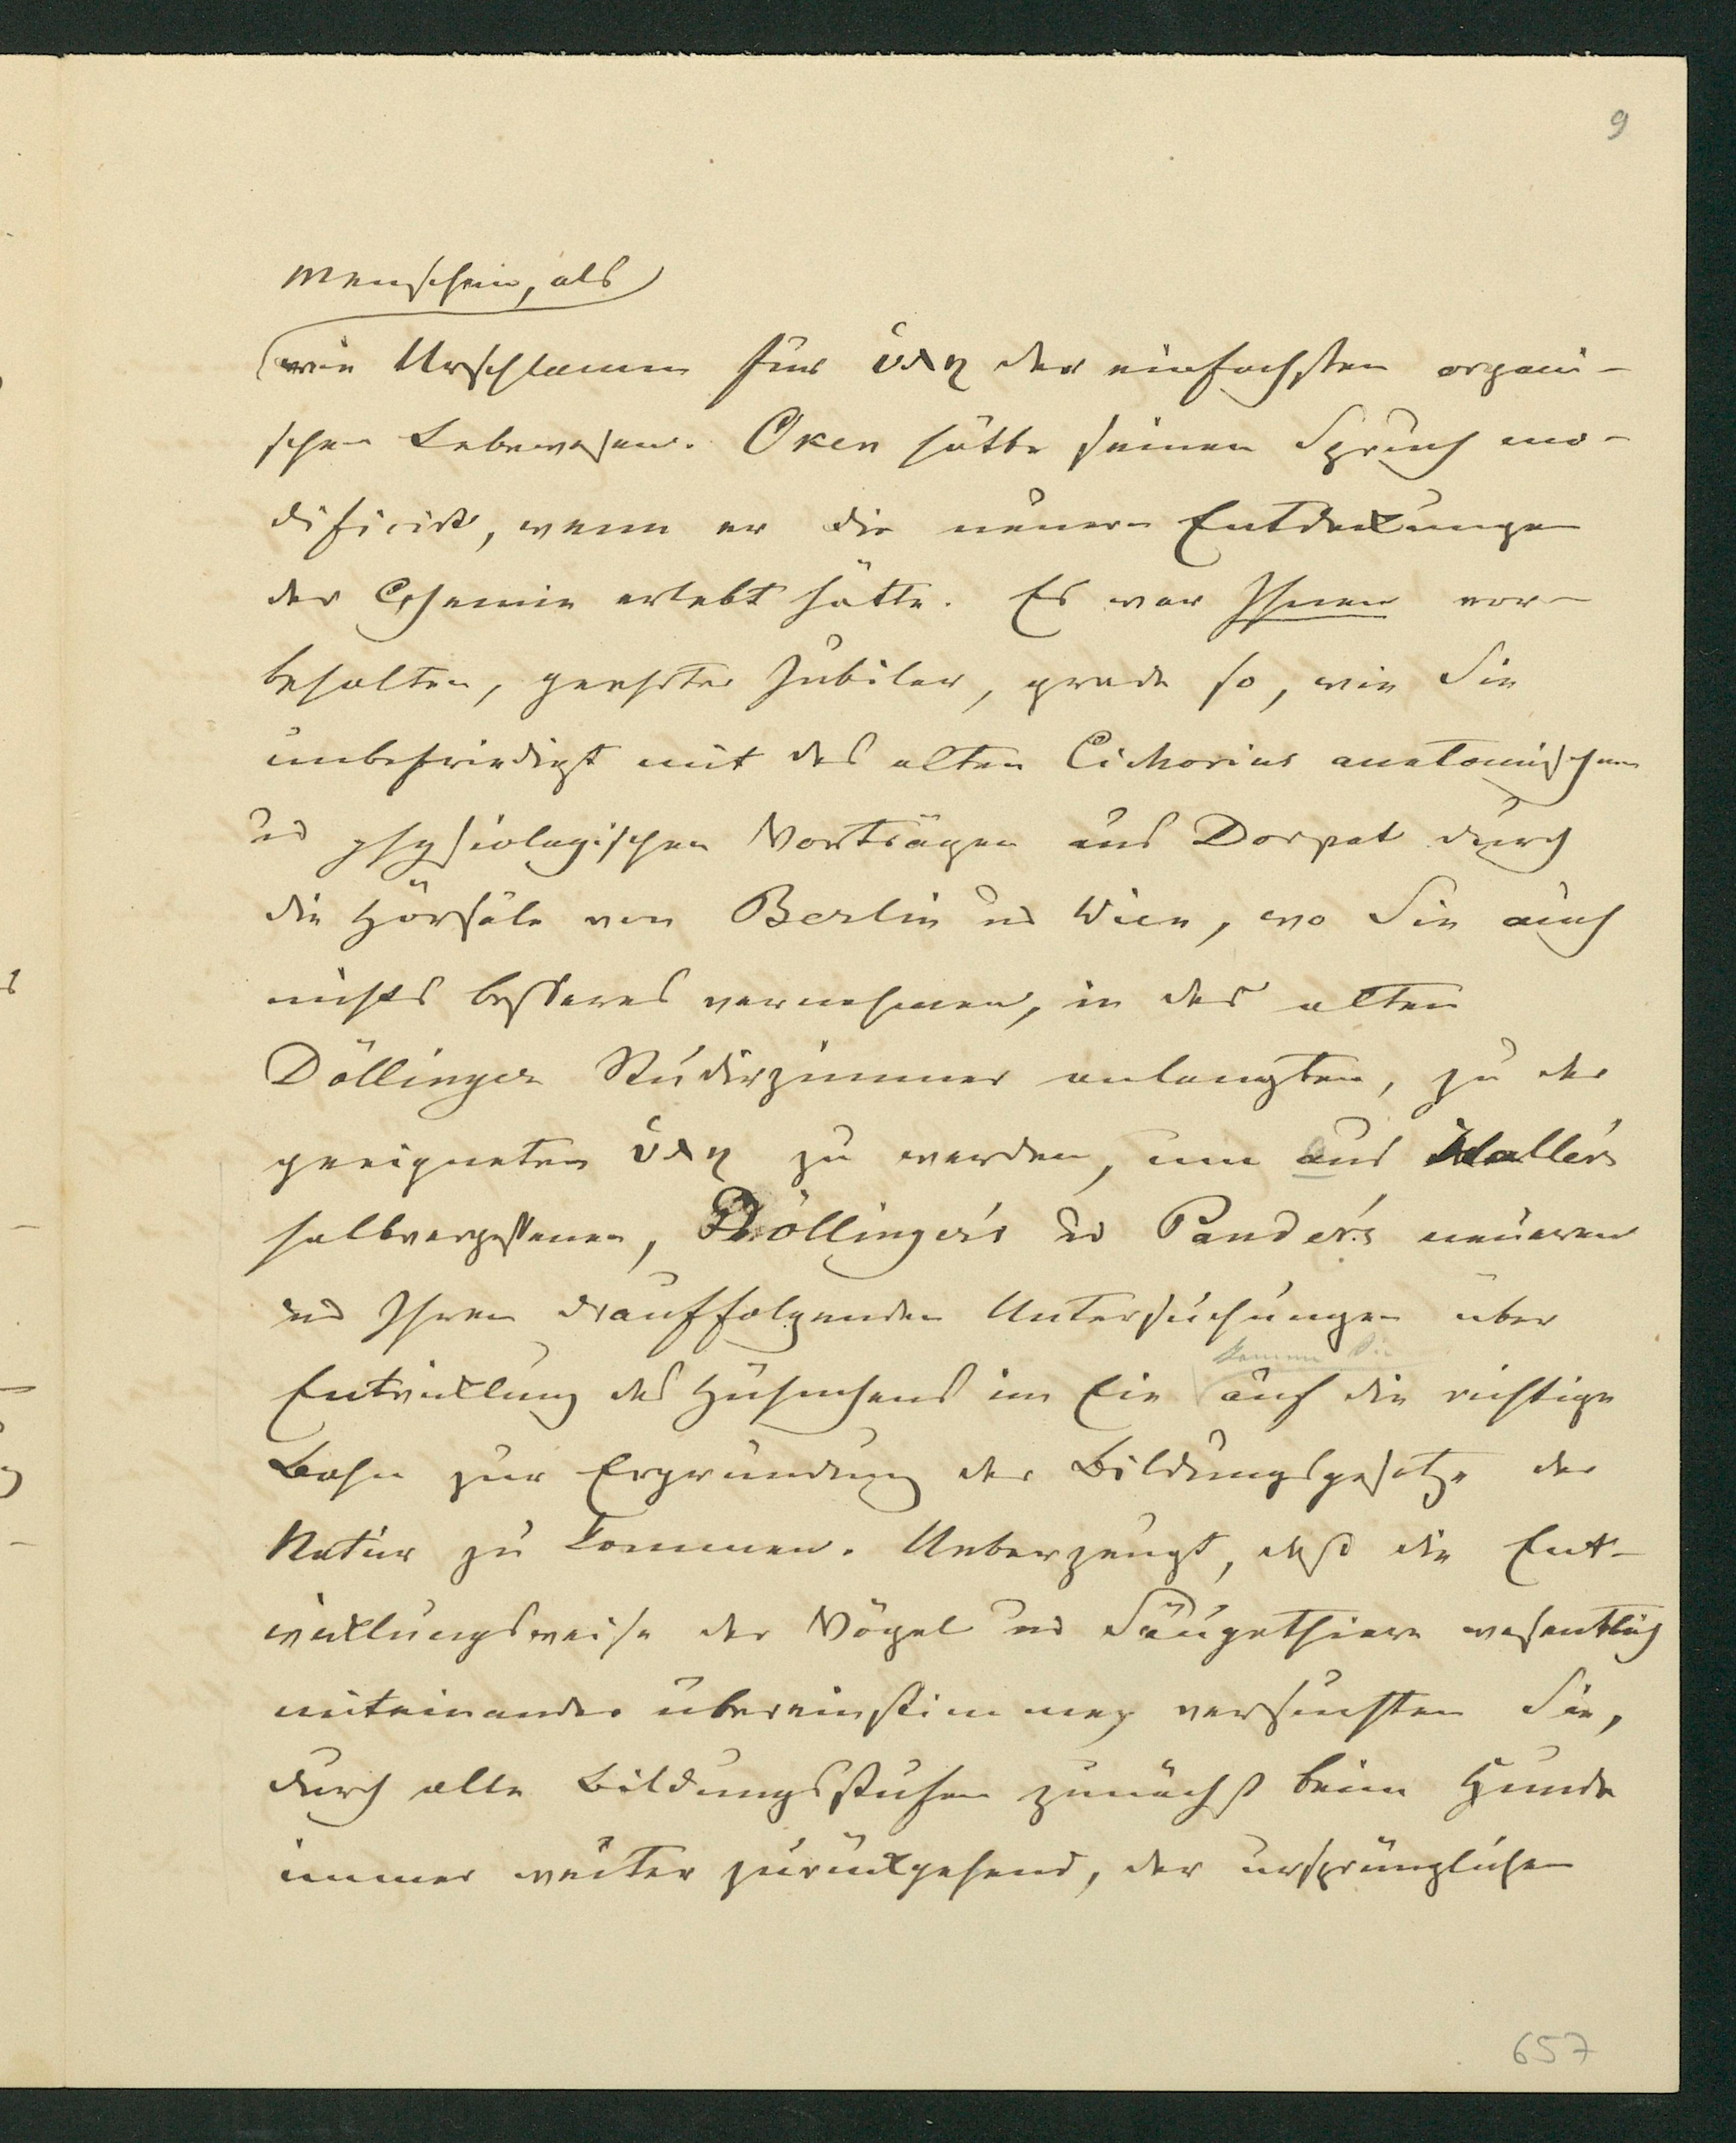 9
Menschein, als
wie Urschlamm für ὑλη der einfachsten organi-
schen Lebewesen. Oken hätte seinen Spruch mo-
dificirt, wenn er die neuern Entdekungen
der Chemie erlebt hätte. Es war Ihnen vor-
behalten, geehrter Jubilar, grade so, wie Sie
unbefriedigt mit des alten Cichorius anatomischen
und physiologischen Vorträgen aus Dorpat durch
die Hörsäle von Berlin und Wien, wo Sie auch
nichts besseres vernehmen, in des alten
Döllinger Studirzimmer anlangten, zu der
geeigneten ὑλη zu werden, um aus Haller's
halbvergessenen, Döllinger's und Pander's neueren
und Ihren drauffolgenden Untersuchungen über
kamen Sie
Entwiklung des Hühnchens im Eie auf die richtige
Bahn zur Ergründung der Bildungsgesetze der
Natur zu kommen. Ueberzeugt, daß die Ent-
wiklungsweise der Vögel und Säugethiere wesentlich
miteinander übereinstimme, versuchten Sie,
durch alle Bildungsstufen zunächst beim Hunde
immer weiter zurükgehend, der ursprünglichen
657